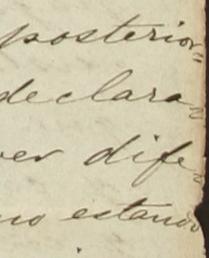 posterior=
declara-
ver dife-
no estando